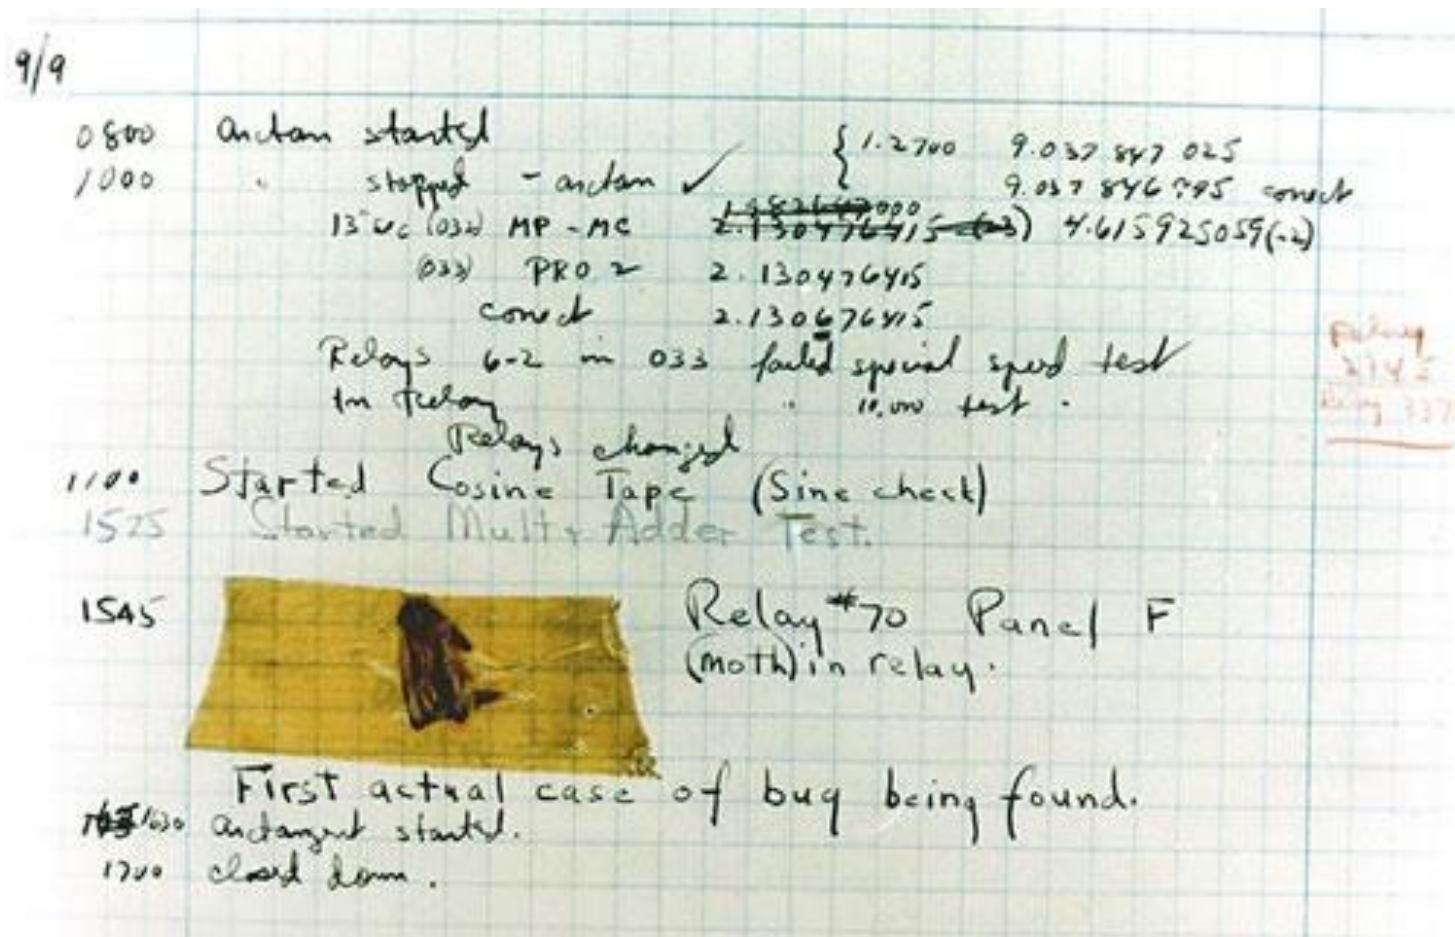 9/9
0800 arctan started { 1.2700 9.037 847 025
1000 " stopped - arctan ✓ 9.037 846 995 correct
13"uc (032) MP - MC 2.130476415 (-3) 4.615925059(-2)
(033) PRO 2 2.130476415
correct 2.130676415
Relays 6-2 in 033 failed special speed test
In Relay " 10,000 test .
Relays changed
1100 Started Cosine Tape (Sine check)
1525 Started Mult + Adder Test.
1545 Relay #70 Panel F
(moth) in relay.
First actual case of bug being found.
1630 arctangent started.
1700 closed down .
Relay
2145
Relay 337